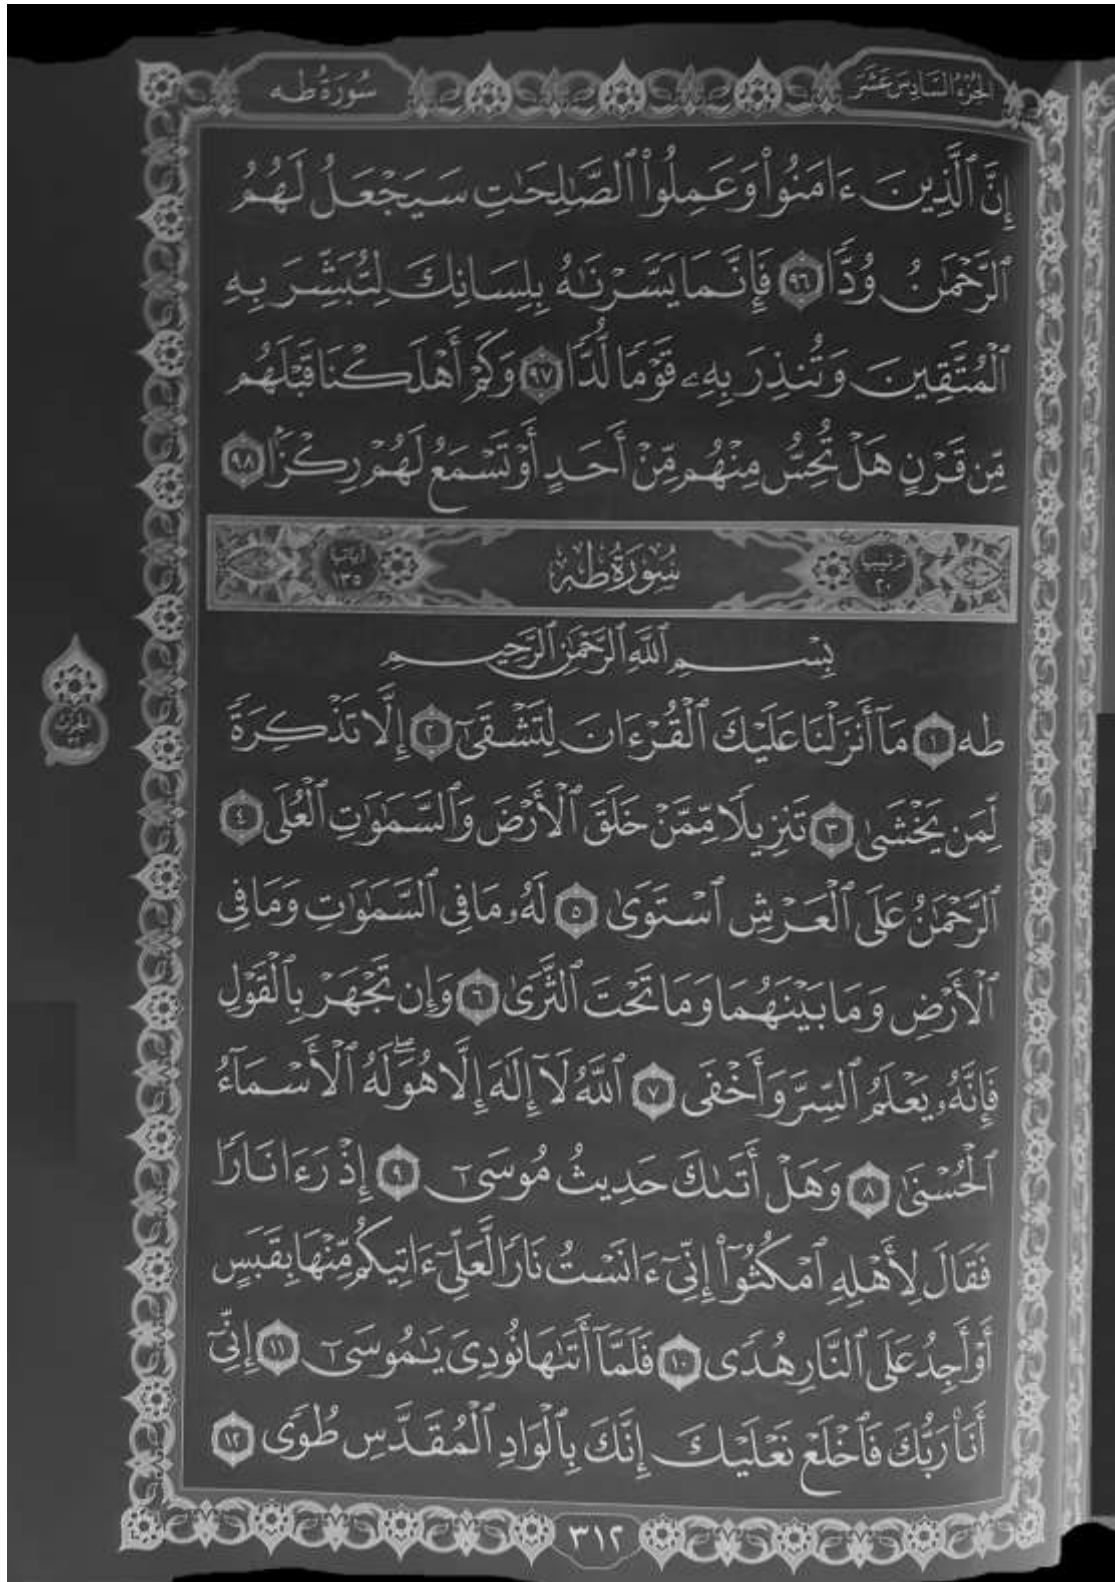 الجزء السادس عشر
سورة طه
إِنَّ ٱلَّذِينَ ءَامَنُوا۟ وَعَمِلُوا۟ ٱلصَّٰلِحَٰتِ سَيَجْعَلُ لَهُمُ
ٱلرَّحْمَٰنُ وُدًّا ٩٦ فَإِنَّمَا يَسَّرْنَٰهُ بِلِسَانِكَ لِتُبَشِّرَ بِهِ
ٱلْمُتَّقِينَ وَتُنذِرَ بِهِۦ قَوْمًا لُّدًّا ٩٧ وَكَمْ أَهْلَكْنَا قَبْلَهُم
مِّن قَرْنٍ هَلْ تُحِسُّ مِنْهُم مِّنْ أَحَدٍ أَوْ تَسْمَعُ لَهُمْ رِكْزًۢا ٩٨
ترتيبها ٢٠ سُورَةُ طه آياتها ١٣٥
بِسْمِ ٱللَّهِ ٱلرَّحْمَٰنِ ٱلرَّحِيمِ
طه ١ مَآ أَنزَلْنَا عَلَيْكَ ٱلْقُرْءَانَ لِتَشْقَىٰٓ ٢ إِلَّا تَذْكِرَةً
لِّمَن يَخْشَىٰ ٣ تَنزِيلًا مِّمَّنْ خَلَقَ ٱلْأَرْضَ وَٱلسَّمَٰوَٰتِ ٱلْعُلَى ٤
ٱلرَّحْمَٰنُ عَلَى ٱلْعَرْشِ ٱسْتَوَىٰ ٥ لَهُۥ مَا فِى ٱلسَّمَٰوَٰتِ وَمَا فِى
ٱلْأَرْضِ وَمَا بَيْنَهُمَا وَمَا تَحْتَ ٱلثَّرَىٰ ٦ وَإِن تَجْهَرْ بِٱلْقَوْلِ
فَإِنَّهُۥ يَعْلَمُ ٱلسِّرَّ وَأَخْفَى ٧ ٱللَّهُ لَآ إِلَٰهَ إِلَّا هُوَۖ لَهُ ٱلْأَسْمَآءُ
ٱلْحُسْنَىٰ ٨ وَهَلْ أَتَىٰكَ حَدِيثُ مُوسَىٰٓ ٩ إِذْ رَءَا نَارًا
فَقَالَ لِأَهْلِهِ ٱمْكُثُوٓا۟ إِنِّىٓ ءَانَسْتُ نَارًا لَّعَلِّىٓ ءَاتِيكُم مِّنْهَا بِقَبَسٍ
أَوْ أَجِدُ عَلَى ٱلنَّارِ هُدًى ١٠ فَلَمَّآ أَتَىٰهَا نُودِىَ يَٰمُوسَىٰٓ ١١ إِنِّىٓ
أَنَا۠ رَبُّكَ فَٱخْلَعْ نَعْلَيْكَ إِنَّكَ بِٱلْوَادِ ٱلْمُقَدَّسِ طُوًى ١٢
٣١٢